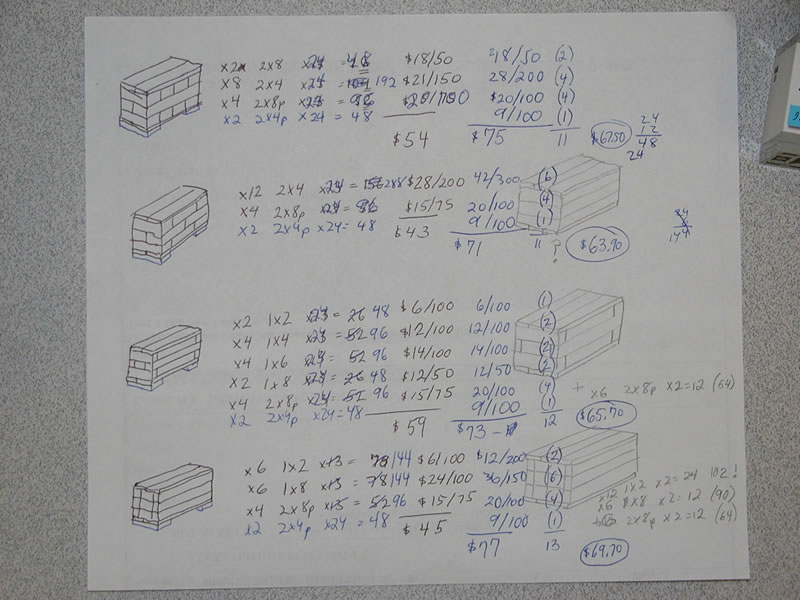 x2 2x8 x24 =48 $18/50 18/50 (2)
x8 2x4 x24 = 192 $21/150 28/200 (4)
x4 2x8p x24 = 96 $20/100 (4)
x2 2x4p x24 = 48 9/100 (1)
$54 $75 11 $67.50
24
12
48
24
x12 2x4 x24 = 288 $28/200 42/300 (6)
x4 2x8p x24 = 96 $15/75 20/100 (4)
x2 2x4p x24= 48 9/100 (1)
$43 $71 11 ? $63.90
144
x2 1x2 = 48 $6/100 6/100 (1)
x4 1x4 = 96 $12/100 12/100 (2)
x4 1x6 = 96 $14/100 14/100 (2)
x2 1x8 = 48 $12/50 12/50 (2)
x4 2x8p = 96 $15/75 20/100 (4)
x2 2x4p x24=48 9/100 (1)
+ x6 2x8p x2=12 (64)
$59 $73 12 $65.70
x6 1x2 x13 = 144 $6/100 $12/200 (2)
x6 1x8 x13 = 144 $24/100 36/150 (6)
x4 2x8p = 96 $15/75 20/100 (4)
x2 2x4p x24 = 48 9/100 (1)
x12 1x2 x2= 24 102!
x8 x2= 12 (90)
2x8p x2=12 (64)
$45 $77 13 $69.70